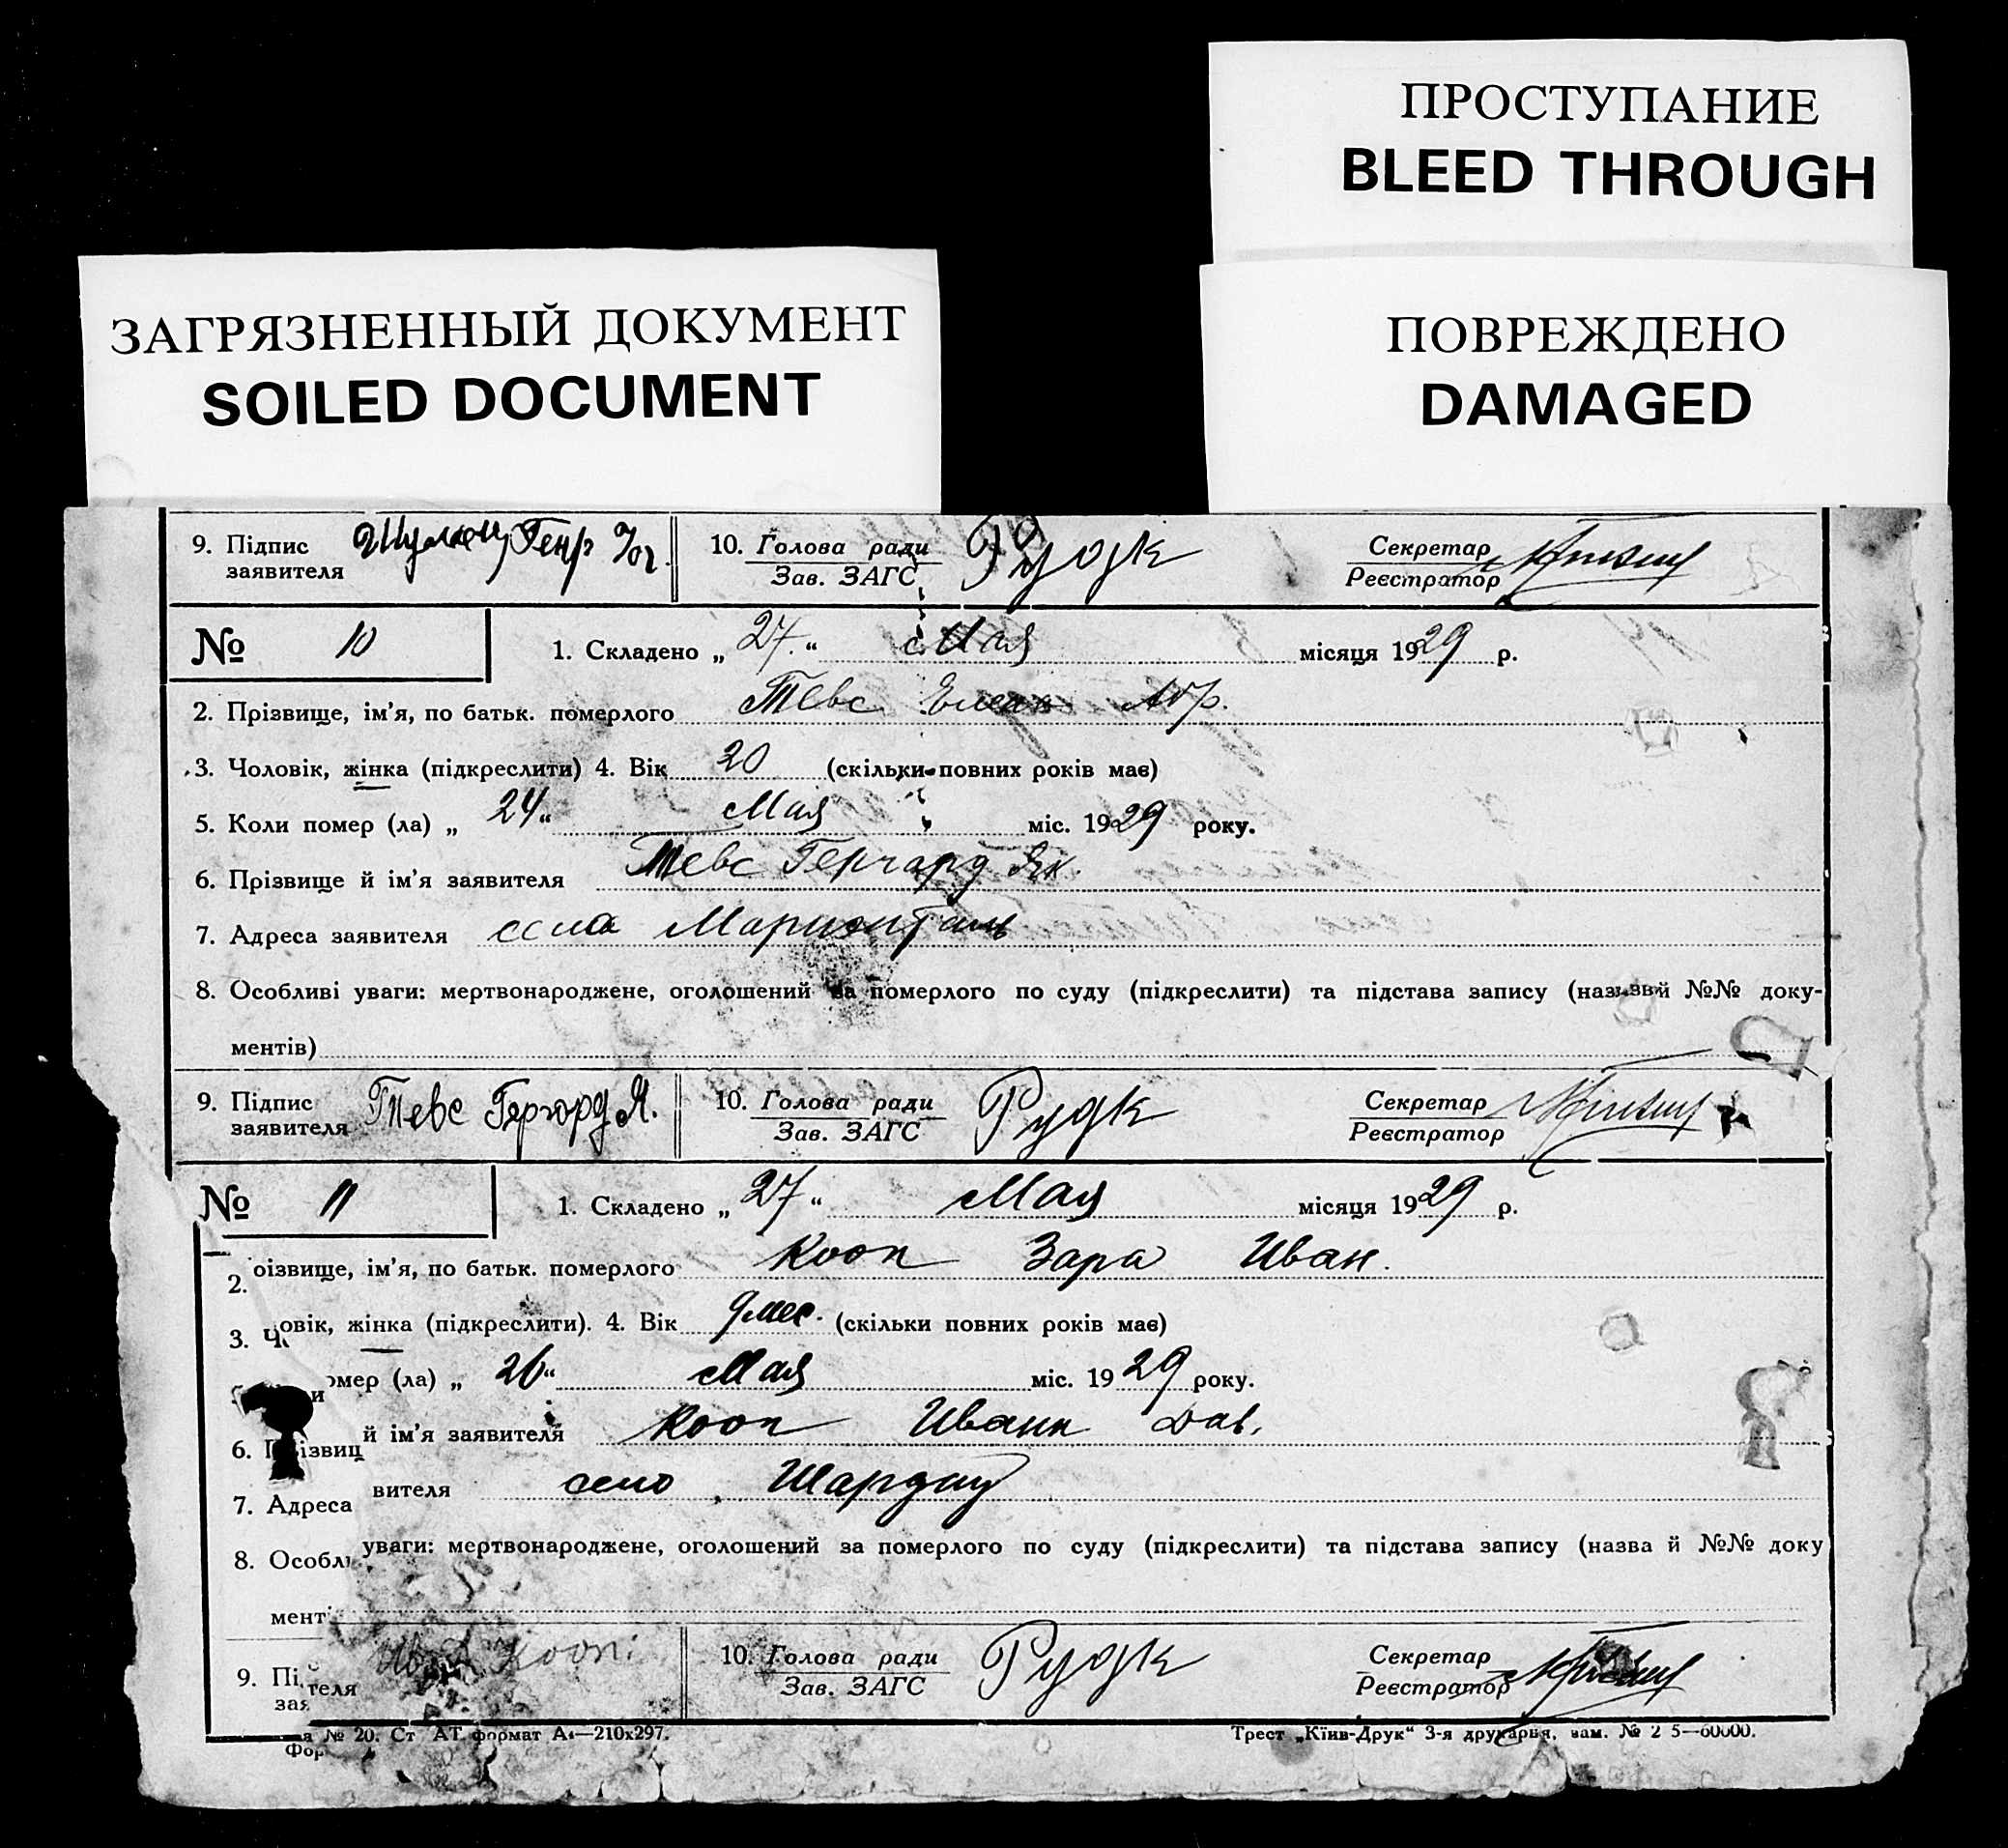 ПРОСТУПАНИЕ
BLEED THROUGH
ЗАГРЯЗНЕННЫЙ ДОКУМЕНТ
SOILED DOCUMENT
ПОВРЕЖДЕНО
DAMAGED
9. Підпис заявителя Генр 10. Голова ради Зав. ЗАГС Рудк Секретар Реєстратор
№ 10 1. Складено „ 27 “ Мая місяця 1929 р.
2. Прізвище, ім'я, по батьк. померлого Тевс Елена Абр.
3. Чоловік, жінка (підкреслити) 4. Вік 20 (скільки повних років має)
5. Коли помер (ла) „ 24 “ Мая міс. 1929 року.
6. Прізвище й ім'я заявителя Тевс Герчард Як.
7. Адреса заявителя село Мариэнталь
8. Особливі уваги: мертвонароджене, оголошений за померлого по суду (підкреслити) та підстава запису (назва й №№ доку-
ментів)
9. Підпис заявителя Тевс Гергорд Я. 10. Голова ради Зав. ЗАГС Рудк Секретар Реєстратор
№ 11 1. Складено „ 27 “ Мая місяця 1929 р.
2. оізвище, ім'я, по батьк. померлого Кооп Зара Иван.
3. Ч овік, жінка (підкреслити). 4. Вік 9 мес. (скільки повних років має)
омер (ла) „ 26 “ Мая міс. 1929 року.
6. П ізвищ й ім'я заявителя Кооп Иван Дав.
7. Адреса вителя село Шардау
8. Особл уваги: мертвонароджене, оголошений за померлого по суду (підкреслити) та підстава запису (назва й №№ доку
мент
9. Пі теля зая Кооп. 10. Голова ради Зав. ЗАГС Рудк Секретар Реєстратор
Фор а № 20. Ст АТ. формат А4—210х297. Трест „Київ-Друк“ 3-я друкарня, зам. № 2 5—60000.